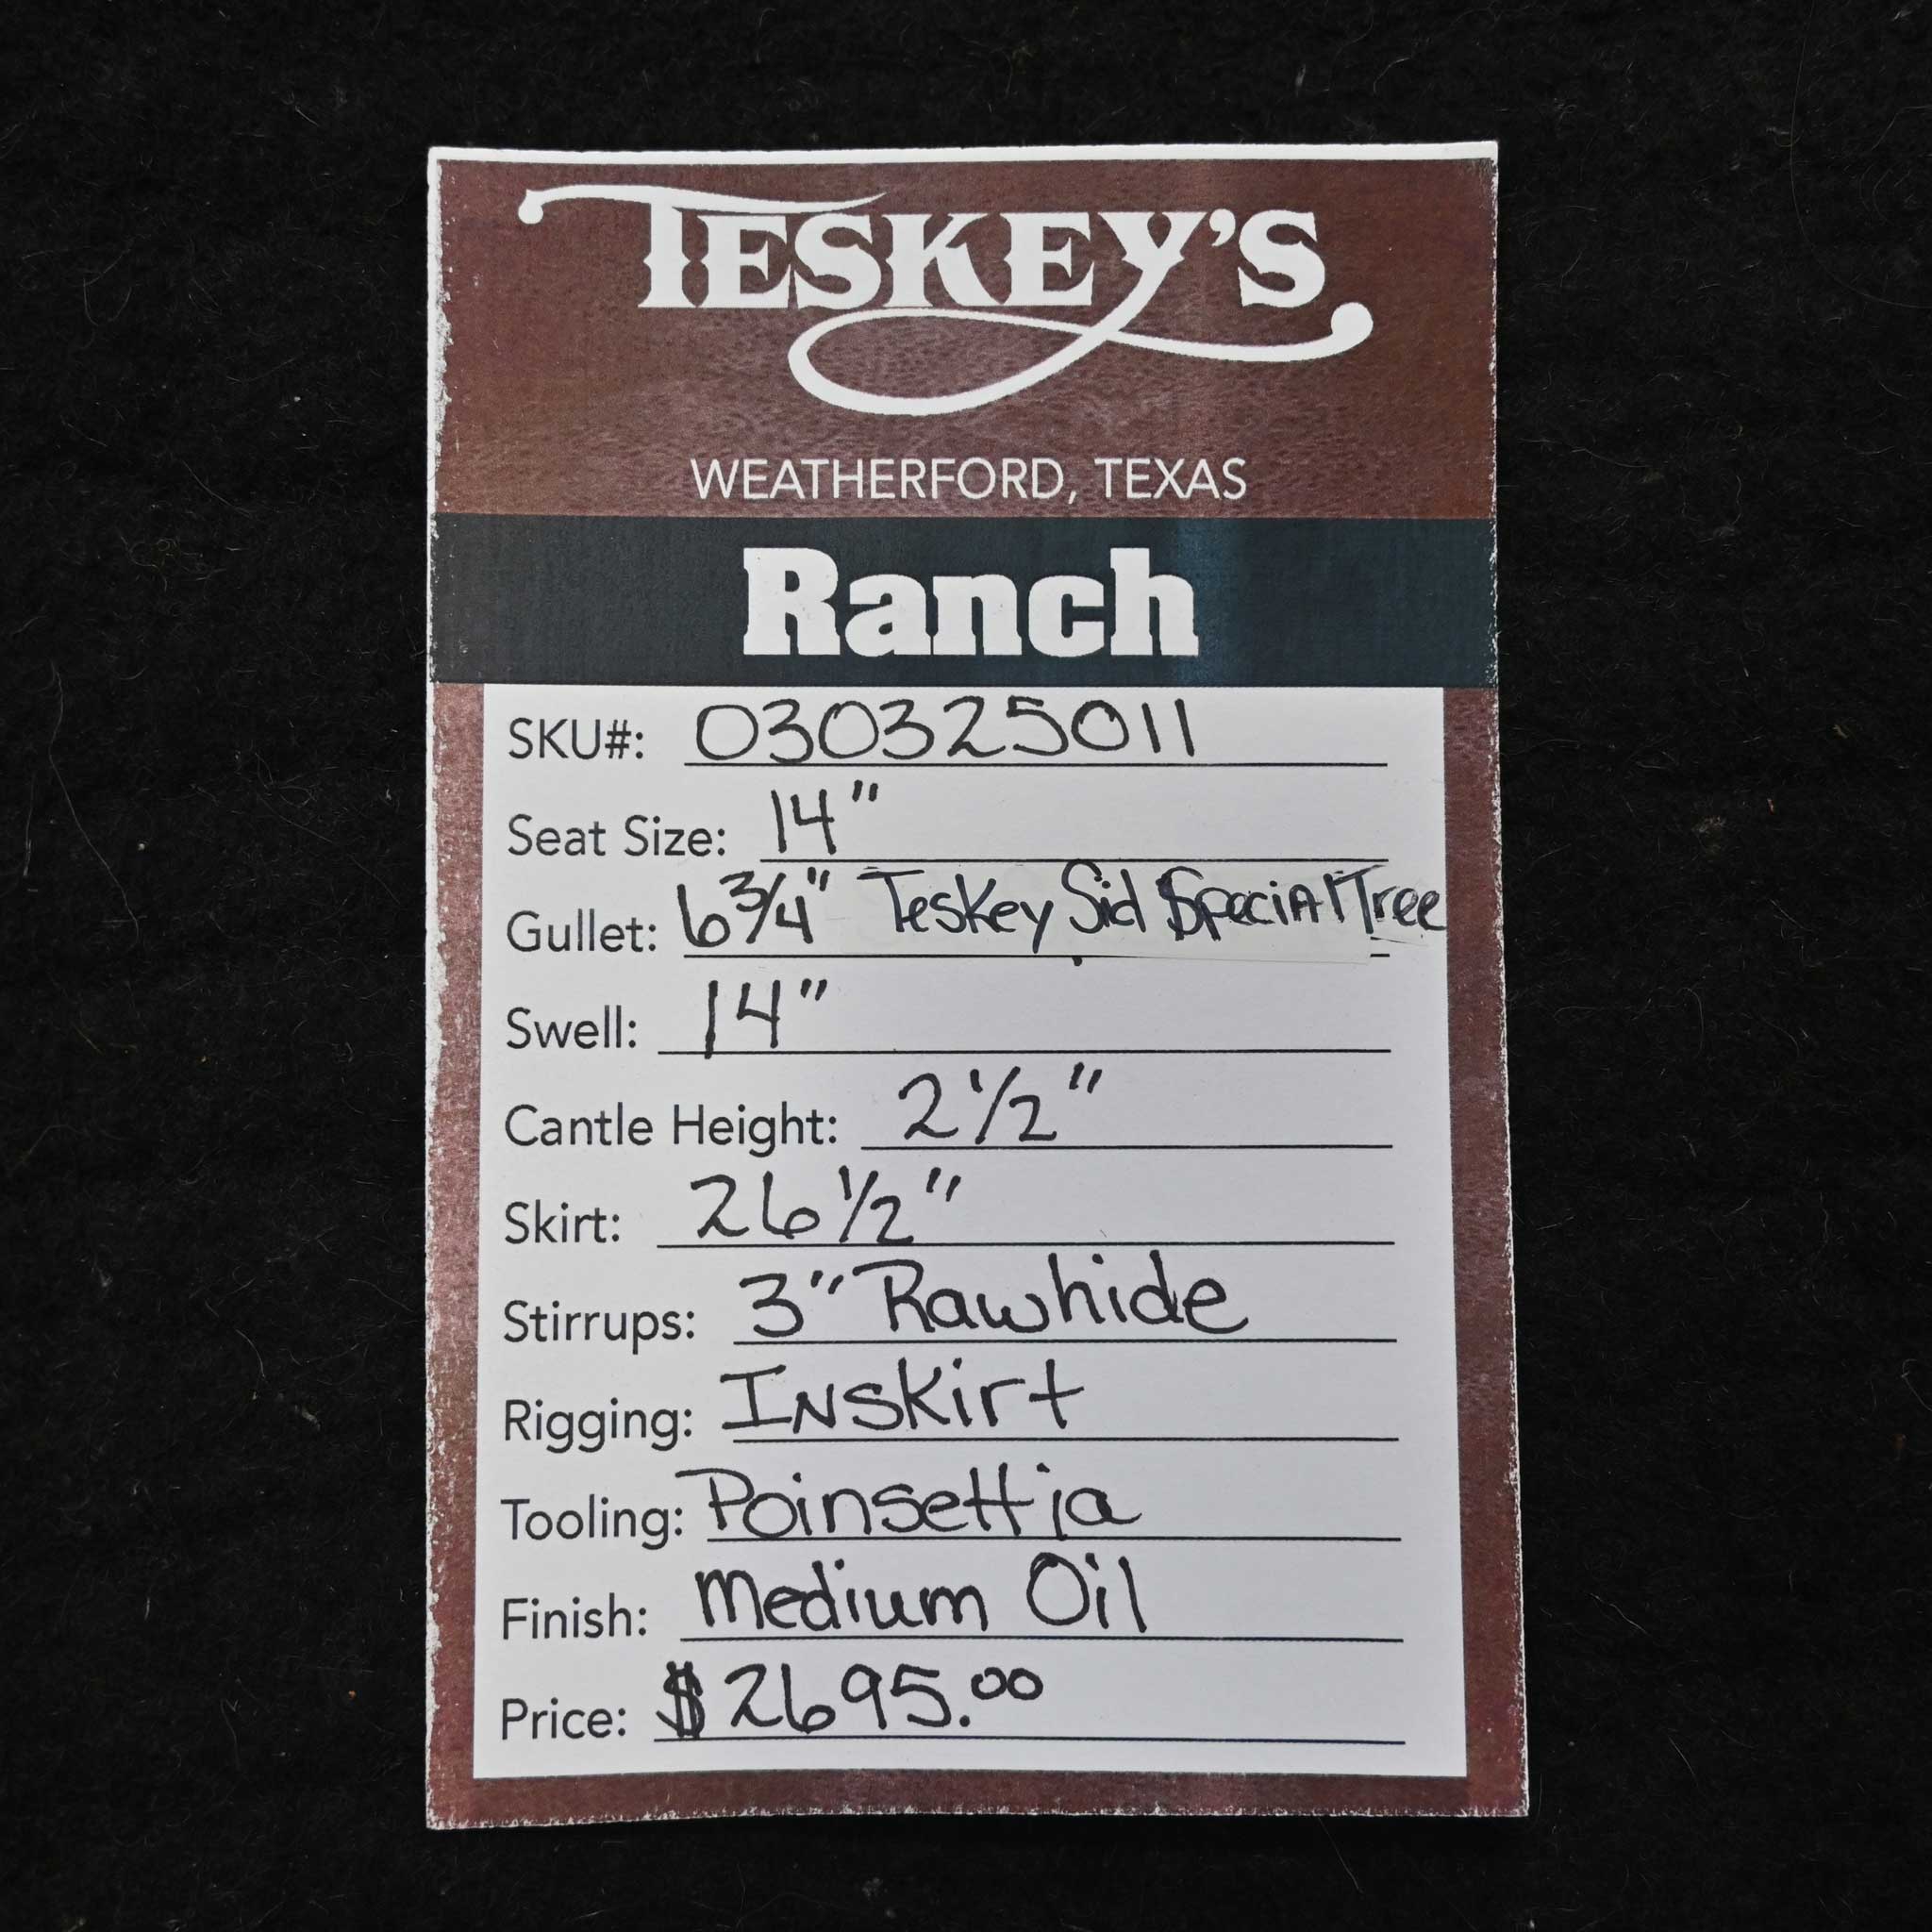 TESKEY'S
WEATHERFORD, TEXAS
Ranch
SKU#: 030325011
Seat Size: 14"
Gullet: 6 3/4" Teskey Sid Special Tree
Swell: 14"
Cantle Height: 2 1/2"
Skirt: 26 1/2"
Stirrups: 3" Rawhide
Rigging: Inskirt
Tooling: Poinsettia
Finish: Medium Oil
Price: $2695.00